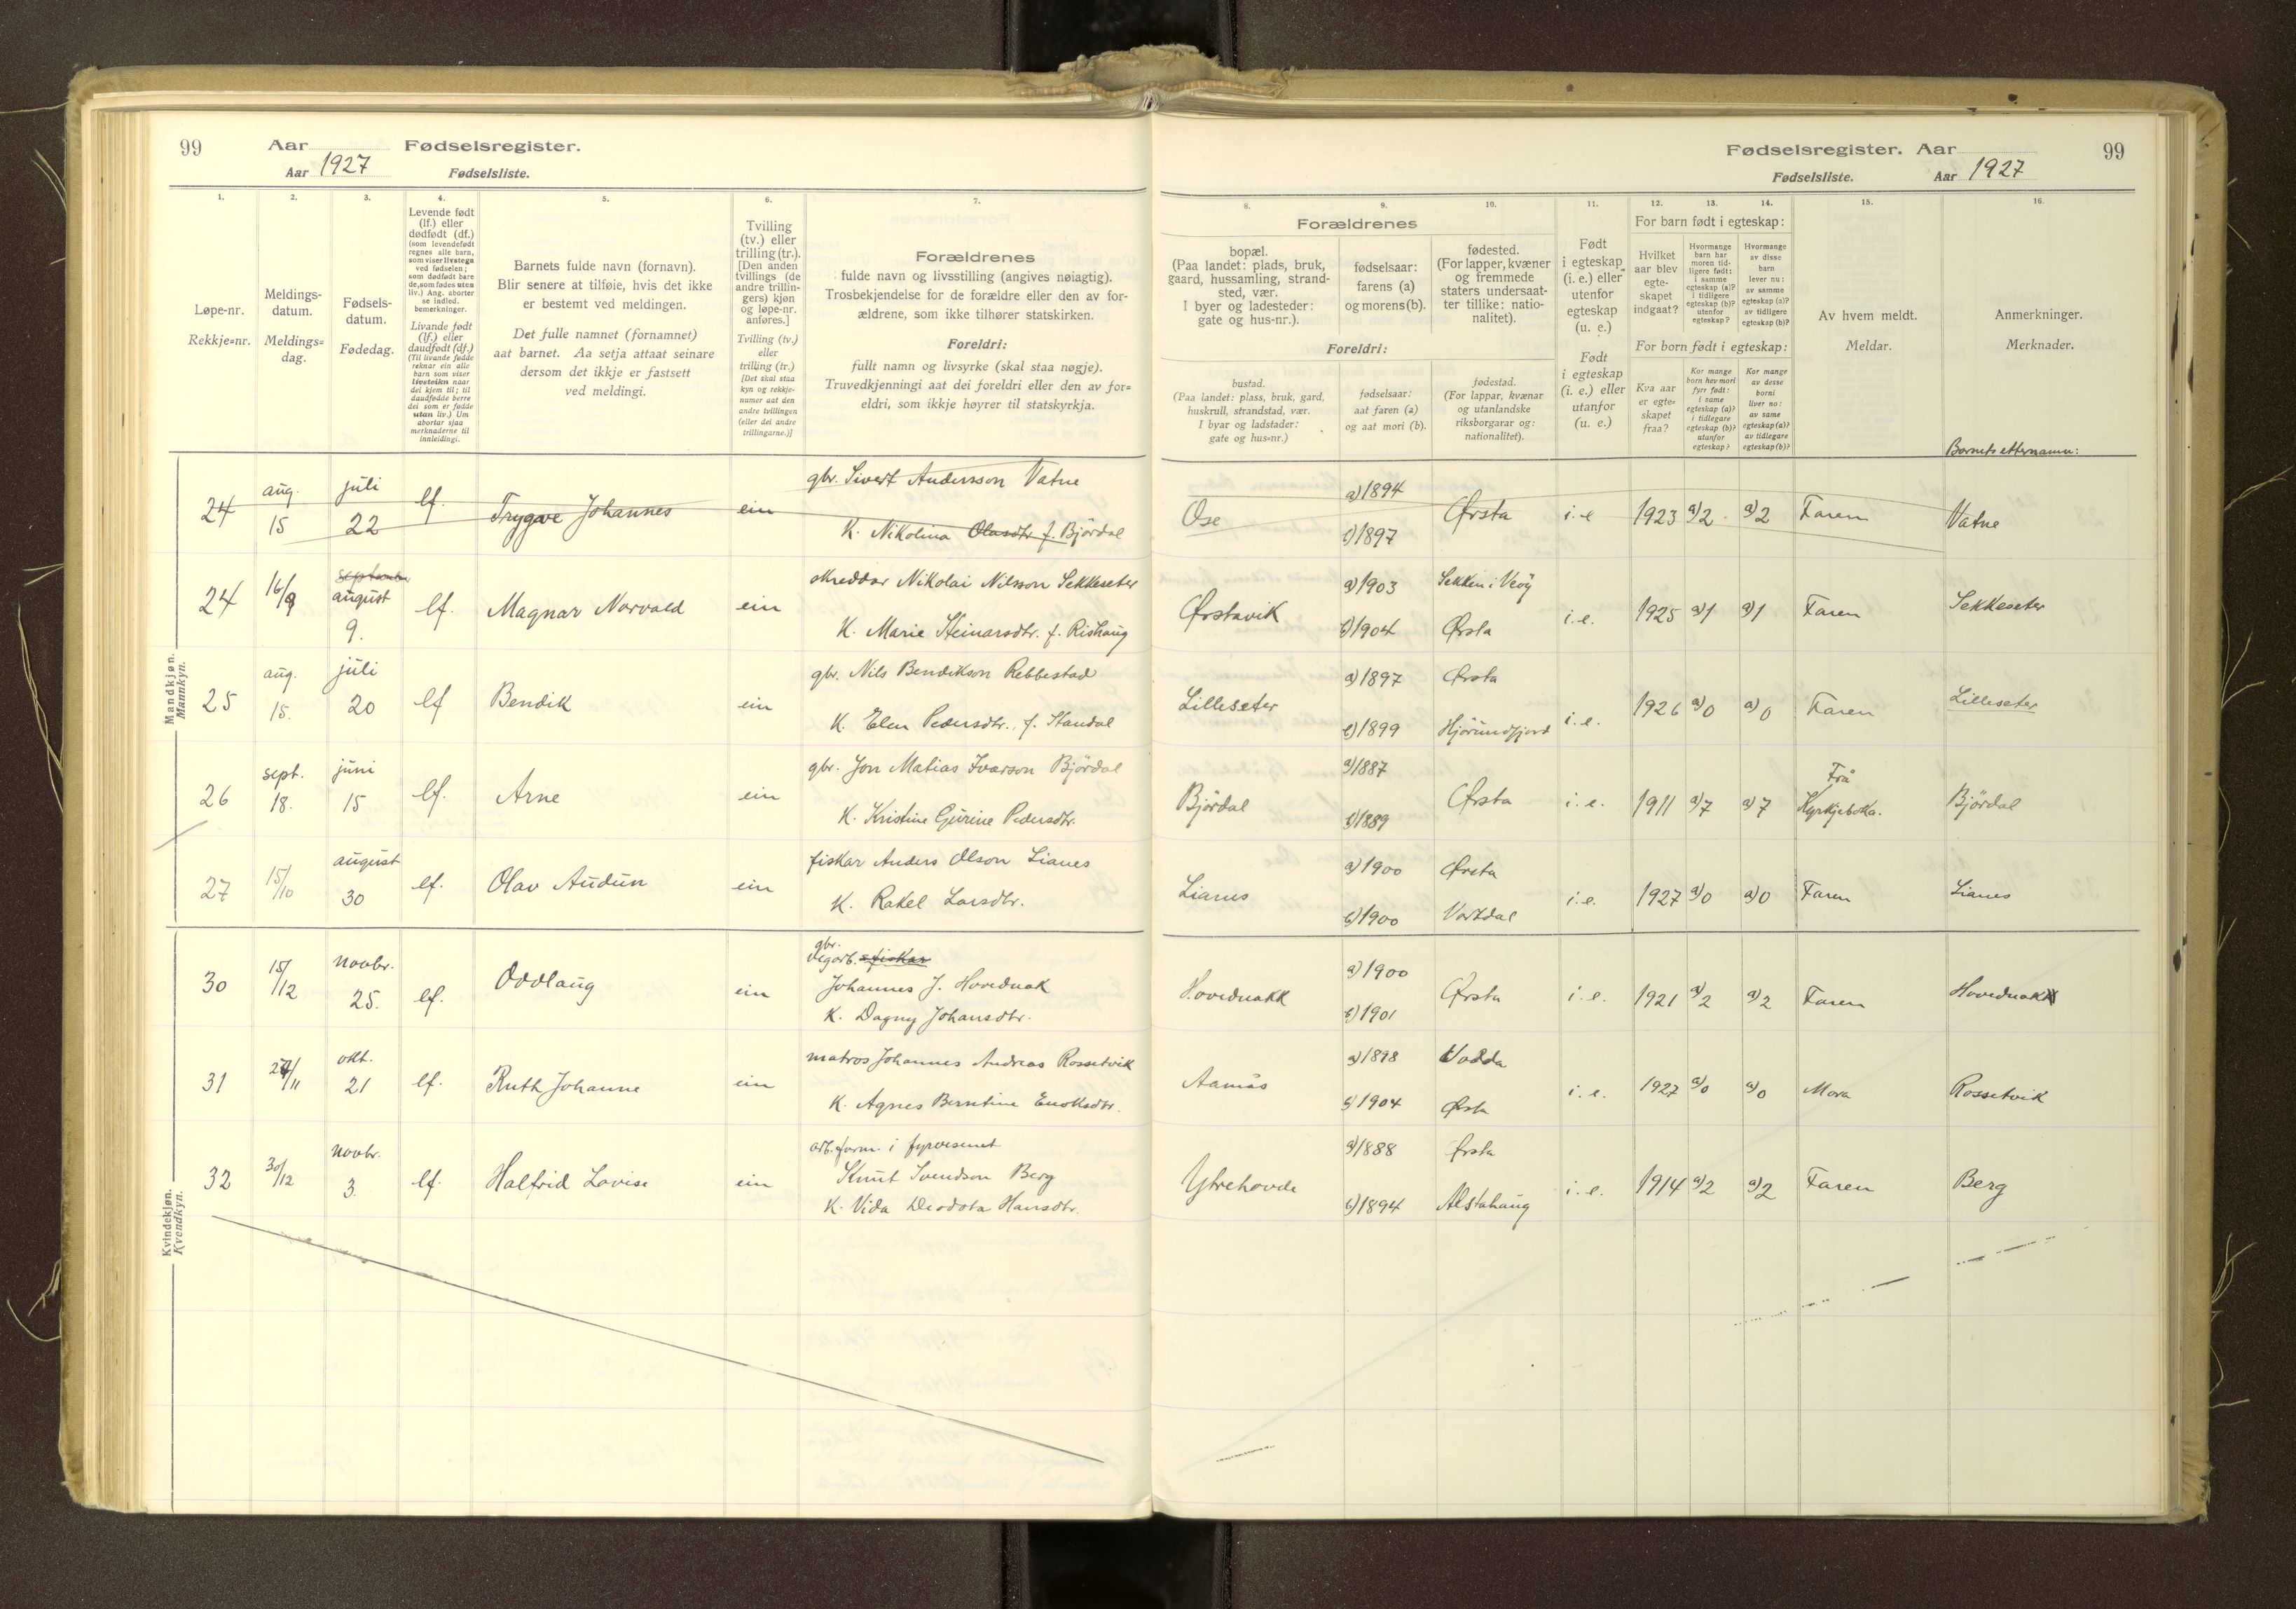 99
Aar
Fødselsregister.
Aar 1927
Fødselsliste.
Fødselsregister. Aar
99
Fødselsliste.
Aar 1927
1.
Løpe-nr.
Rekkje=nr.
2.
Meldings-
datum.
Meldings=
dag.
3.
Fødsels-
datum.
Fødedag.
4.
Levende født
(lf.) eller
dødfødt (df.)
(som levendefødt
regnes alle barn,
som viser livstegn
ved fødselen;
som dødfødt bare
de, som fødes uten
liv.) Ang. aborter
se indled.
bemerkninger.
Livande født
(lf.) eller
daudfødt (df.)
(Til livande fødde
reknar ein alle
barn som viser
livsteikn naar
dei kjem til; til
daudfødde berre
dei som er fødde
utan liv.) Um
abortar sjaa
merknaderne til
innleidingi.
5.
Barnets fulde navn (fornavn).
Blir senere at tilføie, hvis det ikke
er bestemt ved meldingen.
Det fulle namnet (fornamnet)
aat barnet. Aa setja attaat seinare
dersom det ikkje er fastsett
ved meldingi.
6.
Tvilling
(tv.) eller
trilling (tr.).
[Den anden
tvillings (de
andre trillin-
gers) kjøn
og løpe-nr.
anføres.]
Tvilling (tv.)
eller
trilling (tr.)
[Det skal staa
kyn og rekkje-
numer aat den
andre tvillingen
(eller dei andre
trillingarne.)]
7.
Forældrenes
fulde navn og livsstilling (angives nøiagtig).
Trosbekjendelse for de forældre eller den av for-
ældrene, som ikke tilhører statskirken.
Foreldri:
fullt namn og livsyrke (skal staa nøgje).
Truvedkjenningi aat dei foreldri eller den av for=
eldri, som ikkje høyrer til statskyrkja.
Forældrenes
8.
bopæl.
(Paa landet: plads, bruk,
gaard, hussamling, strand-
sted, vær.
I byer og ladesteder:
gate og hus-nr.).
9.
fødselsaar:
farens (a)
og morens (b).
10.
fødested.
(For lapper, kvæner
og fremmede
staters undersaat-
ter tillike: natio-
nalitet).
Foreldri:
bustad.
(Paa landet: plass, bruk, gard,
huskrull, strandstad, vær.
I byar og ladstader:
gate og hus=nr.)
fødselsaar:
aat faren (a)
og aat mori (b).
fødestad.
(For lappar, kvænar
og utanlandske
riksborgarar og:
nationalitet).
11.
Født
i egteskap
(i. e.) eller
utenfor
egteskap
(u. e.)
Født
i egteskap
(i. e.) eller
utanfor
(u. e.)
12.
13.
14.
For barn født i egteskap:
Hvilket
aar blev
egte-
skapet
indgaat?
Hvormange
barn har
moren tid-
ligere født:
i samme
egteskap (a)?
i tidligere
egteskap (b)?
utenfor
egteskap?
Hvormange
av disse
barn
lever nu:
av samme
egteskap (a)?
av tidligere
egteskap (b)?
For born født i egteskap:
Kva aar
er egte-
skapet
fraa?
Kor mange
born hev mori
fyrr født:
i same
egteskap (a)?
i tidlegare
egteskap (b)?
utanfor
egteskap?
Kor mange
av desse
borni
liver no:
av same
egteskap (a)?
av tidlegare
egteskap (b)?
15.
Av hvem meldt.
Meldar.
16.
Anmerkninger.
Merknader.
Barnets etternamn:
Mandkjøn.
Mannkyn.
24 aug. 15 juli 22 lf. Trygve Johannes ein gbr. Sivert Andersson Vatne
K. Nikolina Olasdtr f. Bjørdal
Ose a)1894 b)1897 Ørsta i.e 1923 a)2 a)2 Faren Vatne
24 16/9 september august 9. lf. Magnar Norvald ein skreddar Nikolai Nilsson Sekkeseter
K. Marie Steinarsdtr. f. Rishaug
Ørstavik a)1903 Sekken i Veøy b)1904 Ørsta i.e. 1925 a)1 a)1 Faren Sekkeseter
25 aug. 15. juli 20 lf Bendik ein gbr. Nils Bendikson Rebbestad
K. Elen Pedersdtr. f. Standal
Lilleseter a)1897 Ørsta b)1899 Hjørundfjord i.e. 1926 a)0 a)0 Faren Lilleseter
26 sept. 18. juni 15 lf. Arne ein gbr. Jon Matias Ivarson Bjørdal
K. Kristine Gurine Pedersdtr.
Bjørdal a)1887 b)1889 Ørsta i.e. 1911 a)7 a)7 Frå Kyrkjeboka. Bjørdal
27 15/10 august 30 lf. Olav Audun ein fiskar Anders Olson Lianes
K. Rakel Larsdtr.
Lianes a)1900 Ørsta b)1900 Vartdal i.e. 1927 a)0 a)0 Faren Lianes
Kvindekjøn.
Kvendkyn.
30 15/12 novbr. 25. lf. Oddlaug ein gbr.
vegarb. fiskar
Johannes J. Hovednak
K. Dagny Johansdtr.
Hovednakk a)1900 b)1901 Ørsta i.e. 1921 a)2 a)2 Faren Hovednakk
31 27/11 okt. 21 lf. Ruth Johanne ein matros Johannes Andreas Rossetvik
K. Agnes Berntine Enoksdtr.
Aamås a)1898 b)1904 Ørsta i.e. 1927 a)0 a)0 Mora Rossetvik
32 30/12 novbr. 3. lf. Halfrid Lovise ein arb.form. i fyrvesenet
Knut Svendson Berg
K. Vida Hansdtr.
Ytrehovde a)1888 Ørsta b)1894 Alstahaug i.e. 1914 a)2 a)2 Faren Berg